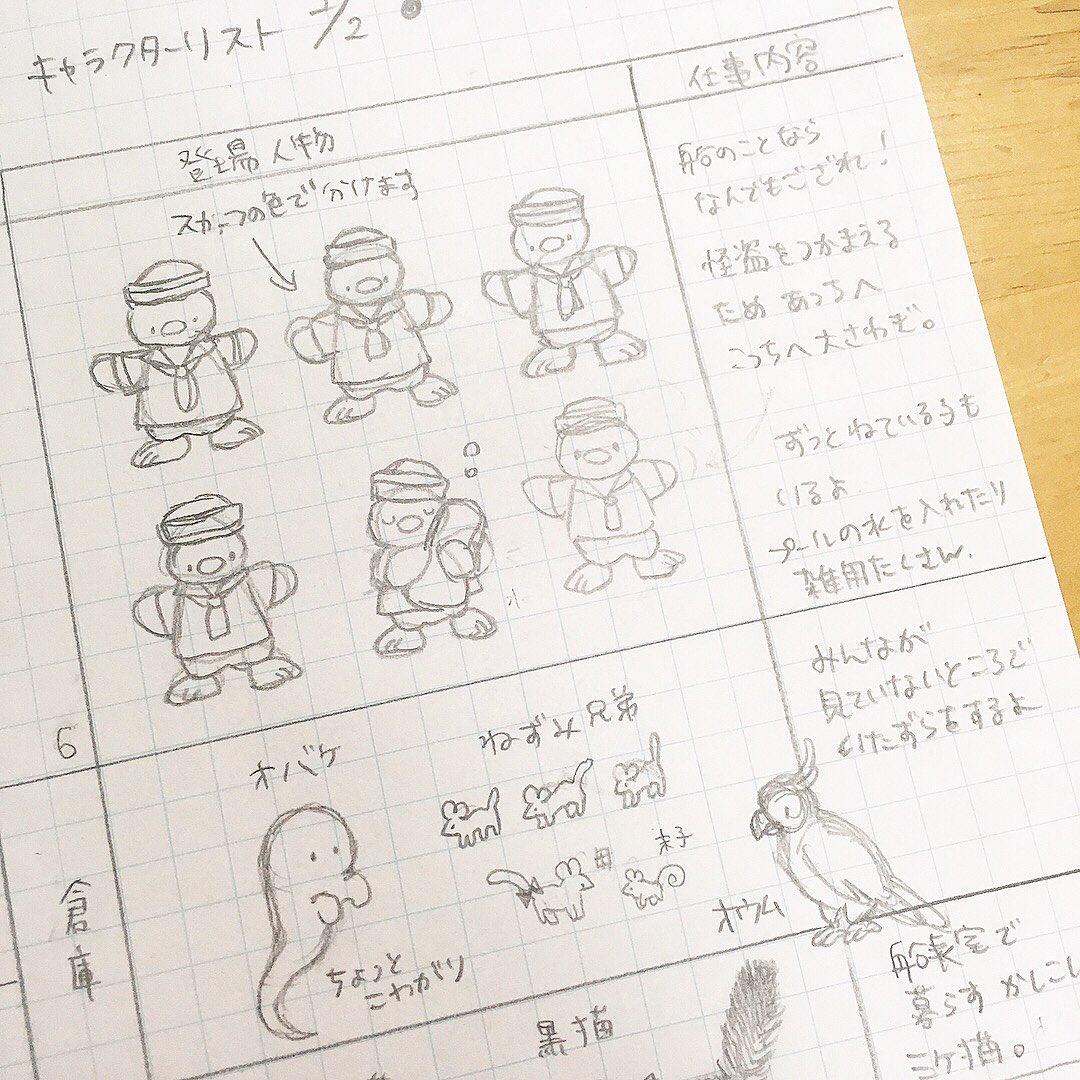 キャラクターリスト 1/2
登場人物
仕事内容
スカーフの色で分けます
船のことなら
なんでもござれ！
怪盗をつかまえる
ため あっちへ
こっちへ大さわぎ。
ずっとねている子も
いるよ
プールの水を入れたり
雑用たくさん
6
倉庫
オバケ
ちょっと
こわがり
ねずみ兄弟
末子
オウム
みんなが
見ていないところで
いたずらをするよ
黒猫
船長室で
暮らす かしこい
三ケ猫。